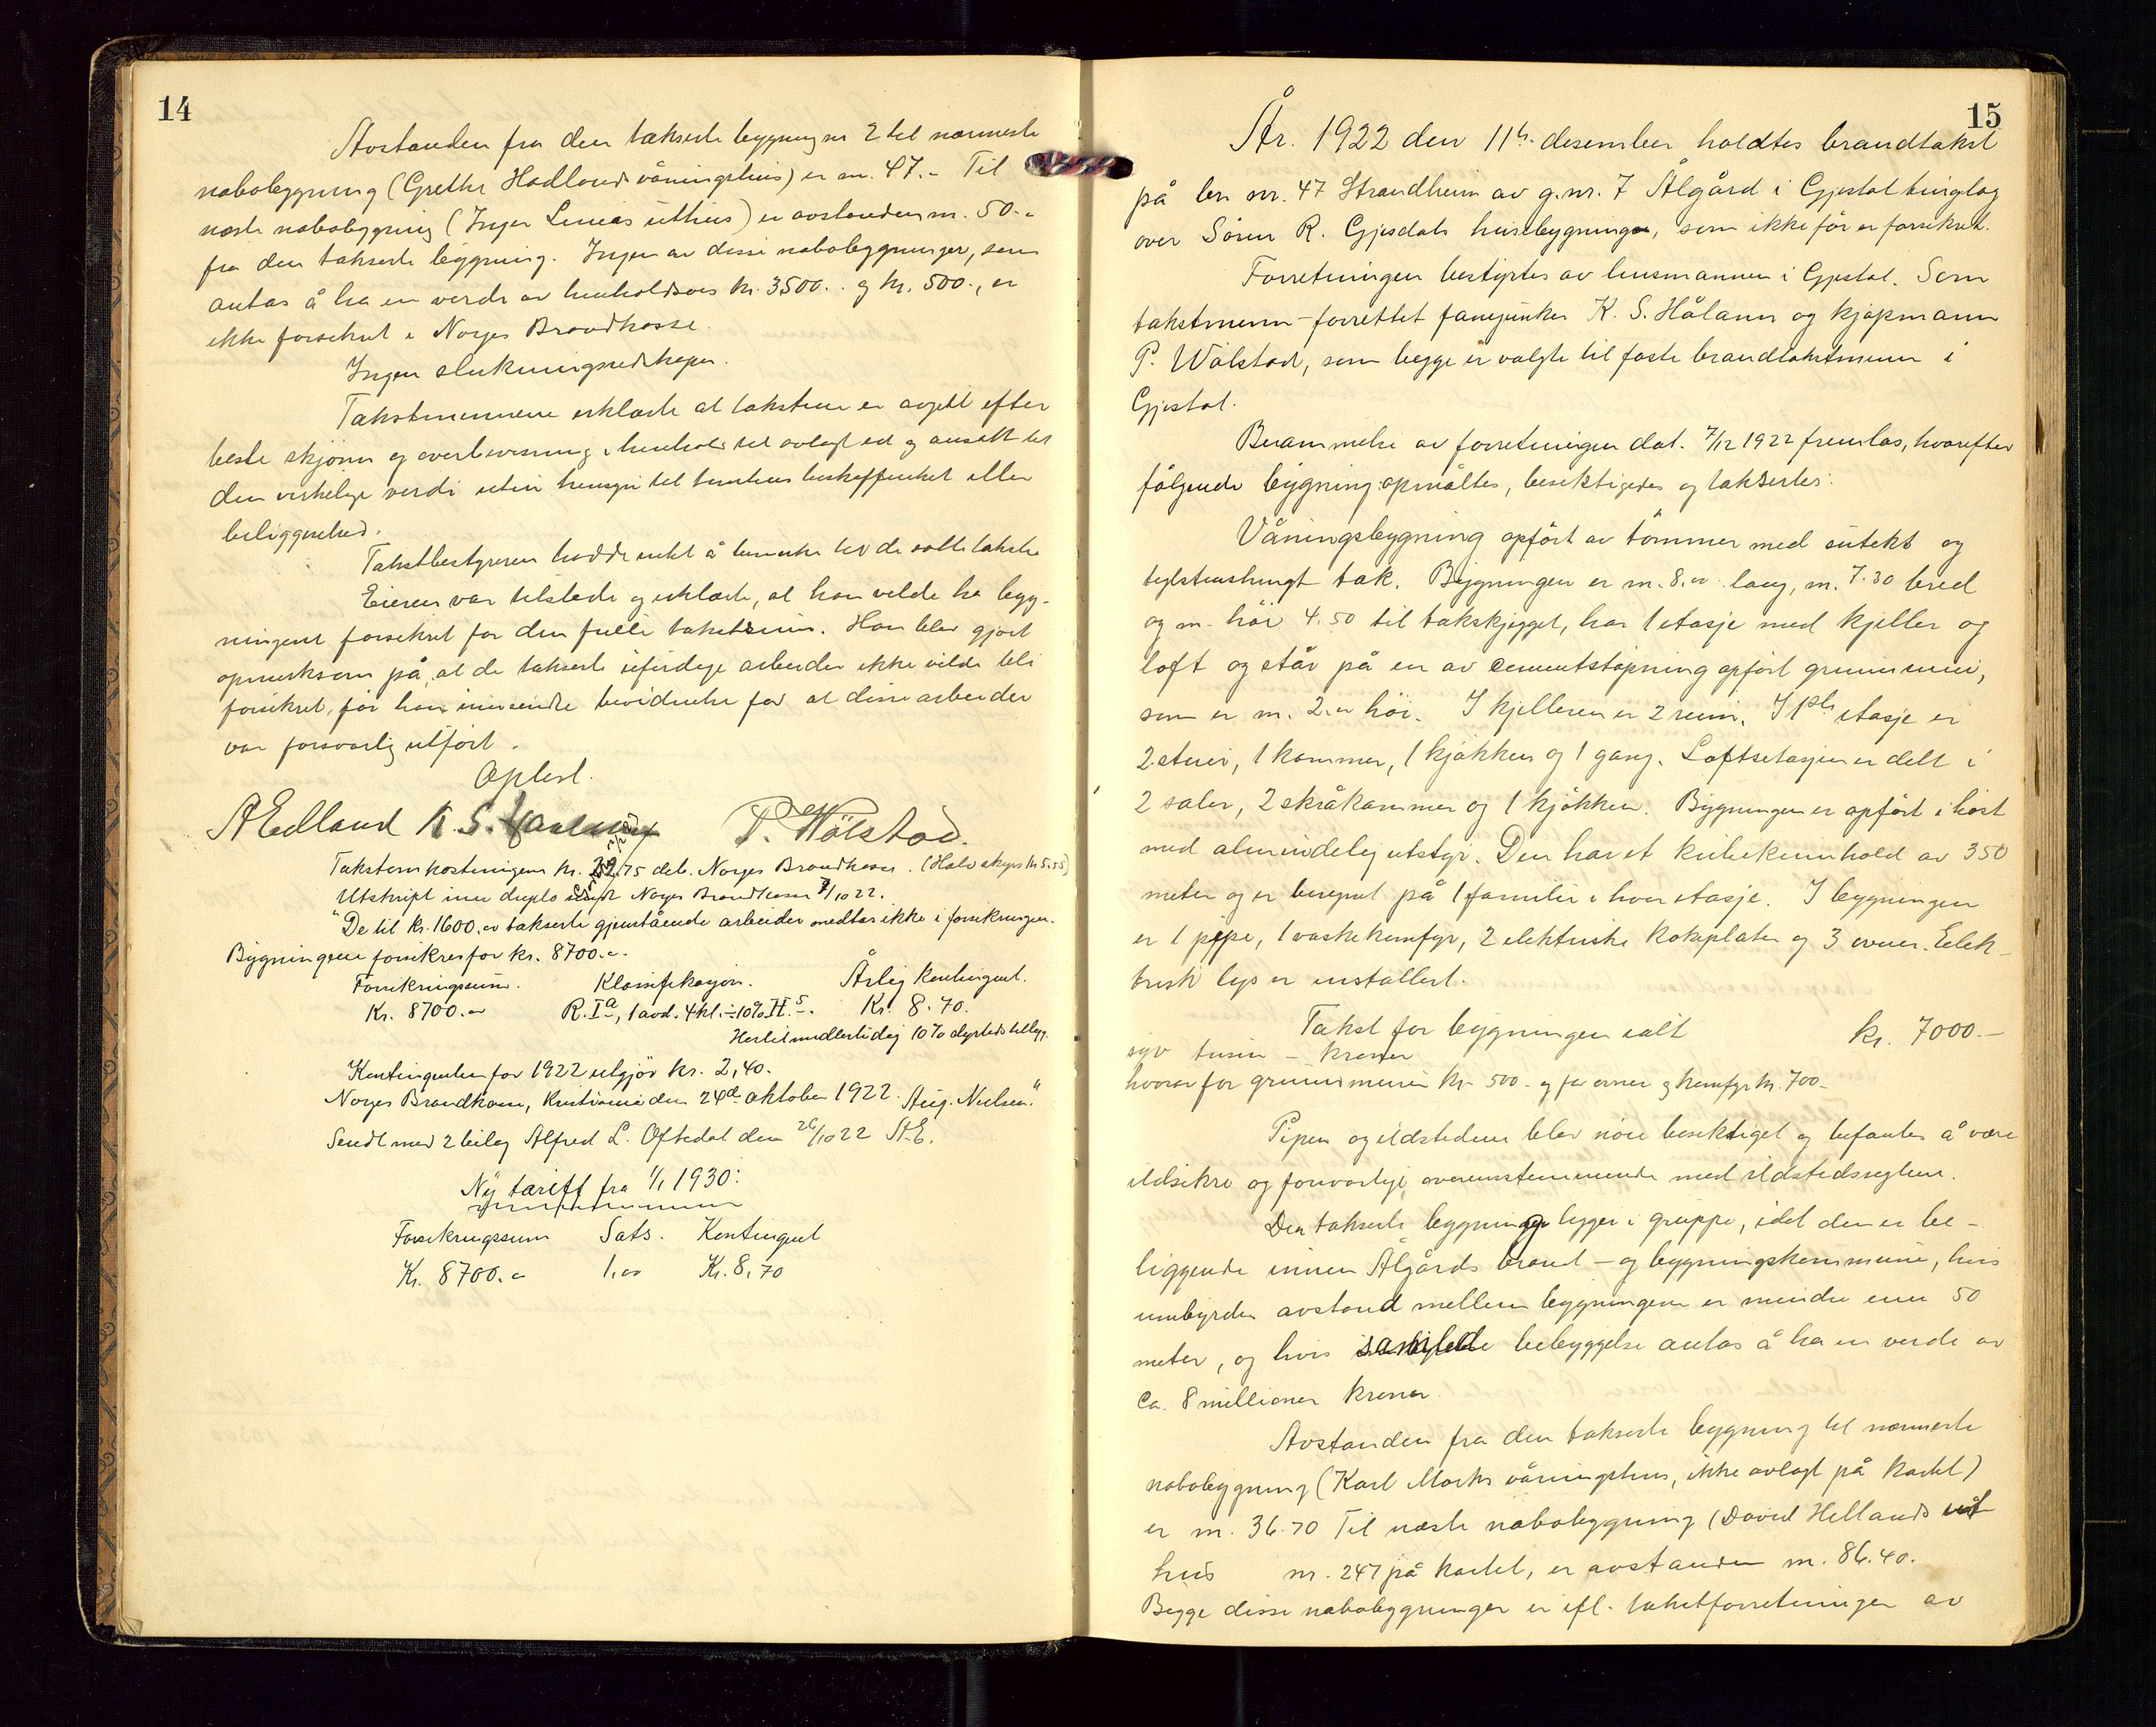 14
Avstanden fra den takserte bygning nr 2 til nærmeste
nabobygning (Grethe Hadlands våningshus) er m. 47.- Til
næste nabobygning (Inger Lenas uthus) er avstanden m. 50.-
fra den takserte bygning. Ingen av disse nabobygninger, som
antas å ha en verdi av henholdsvis kr. 3500.- og kr. 500.-, er
ikke forsikret i Norges Brandkasse.
Ingen slukningsredskaper.
Takstmennene erklærte at taksten er avgitt efter
beste skjønn og overbevisning i henhold til avlagt ed og ansatt til
den virkelige verdi uten hensyn til tomtens beskaffenhet eller
beliggenhed.
Takstbestyreren hadde intet å bemerke til de satte takster
Eieren var tilstede og erklærte, at han vilde ha byg-
ningene forsikret for den fulle takstsum. Han blev gjort
opmerksom på, at de takserte uferdige arbeider ikke vilde bli
forsikret, før han innsendte bevidnelse for at disse arbeider
var forsvarlig utført.
Oplest.
A Edland K. S. P. Wølstad.
Takstomkostningene kr. 75 deb. Norges Brandkasse. (Halv skyss kr 5.55)
Utskrift inn duplo sendt Norges Brandkasse 7/10 22.
"De til kr. 1600.- takserte gjenstående arbeider medtas ikke i forsikringen.
Bygningene forsikres for kr. 8700.-.
Forsikringssum. Klassifikasjon. Årlig kontingent.
Kr. 8700.- R. Ia, 1 avd. 4 kl. ÷ 10% II.5. Kr. 8.70.
Hertil midlertidig 10% dyrtidstillegg.
Kontingenten for 1922 utgjør kr. 2,40.
Norges Brandkasse, Kristiania den 24de oktober 1922. Aug. Nielsen."
Sendt med 2 bilag Alfred L. Oftedal den 26/10 22 A.E.
Ny tariff fra 1/1 1930:
Forsikringssum Sats. Kontingent
Kr. 8700.- 1,00 Kr. 8,70
15
År. 1922 den 11te desember holdtes brandtakst
på br. nr. 47 Strandheim av g.nr. 7 Ålgård i Gjestal tinglag
over Sören R. Gjesdals husebygning, som ikke før er forsikret.
Forretningen bestyrtes av lensmannen i Gjestal. Som
takstmenn forrettet fanejunker K. S. Hålann og kjøpmann
P. Wølstad, som begge er valgte til faste brandtakstmenn i
Gjestal.
Berammelse av forretningen dat. 7/12 1922 fremlas, hvorefter
følgende bygning opmåltes, besiktigedes og takseres:
Våningsbygning opført av tømmer med sutekt og
teglstenshengt tak. Bygningen er m. 8.00 lang, m. 7.30 bred
og m. høi 4.50 til takskjegget, har 1 etasje med kjeller og
loft og står på en av cementstøpning opført grunnmur,
som er m. 2.00 høi. I kjelleren er 2 rum. I 1ste etasje er
2 stuer, 1 kammer, 1 kjøkken og 1 gang. Loftsetasjen er delt i
2 saler, 2 skråkammer og 1 kjøkken. Bygningen er opført i høst
med almindelig utstyr. Den har et kubikkinnhold av 350
meter og er beregnet på 1 familie i hver etasje. I bygningen
er 1 pipe, 1 vaskekomfyr, 2 elektriske kokeplater og 3 ovner. Elek-
trisk lys er installert.
Takst for bygningen ialt kr. 7000.-
syv tusen - kroner
hvorav for grunnmuren kr. 500.- og for ovner og komfyr kr. 700.-
Pipen og ildstedene blev nøie besiktiget og befantes å være
ildsikre og forsvarlige, overensstemmende med ildstedsreglene.
Den takserte bygning ligger i gruppe, idet den er be-
liggende innen Ålgårds brand- og bygningskommune, hvis
innbyrdes avstand mellem bygningene er mindre enn 50
meter, og hvis samlede bebyggelse antas å ha en verdi av
ca. 8 millioner kroner.
Avstanden fra den takserte bygning til nærmeste
nabobygning (Karl Morks våningshus, ikke avlagt på kartet)
er m. 36.70 Til næste nabobygning (David Hellands ut
hus nr. 247 på kartet, er avstanden m. 86.40.
Begge disse nabobygninger er ifl. takstforretninger av